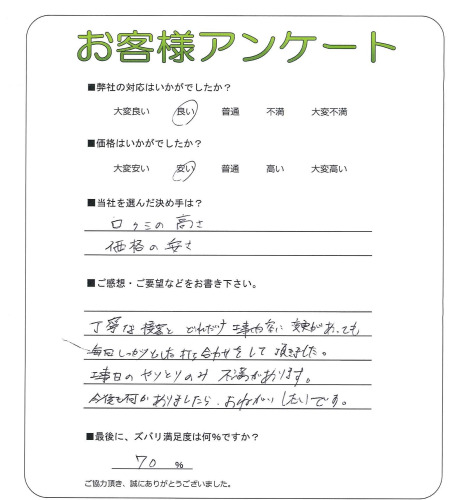 お客様アンケート
■弊社の対応はいかがでしたか？
大変良い 良い 普通 不満 大変不満
■価格はいかがでしたか？
大変安い 安い 普通 高い 大変高い
■当社を選んだ決め手は？
口クミの高さ
価格の安さ
■ご感想・ご要望などをお書き下さい。
丁寧な接客と どれだけ 工事内容に 変更があっても
毎回しっかりとした打ち合わせをして頂きました。
工事日のやりとりのみ 不満があります。
今後も何かありましたら、おねがいしたいです。
■最後に、ズバリ満足度は何%ですか？
70 %
ご協力頂き、誠にありがとうございました。